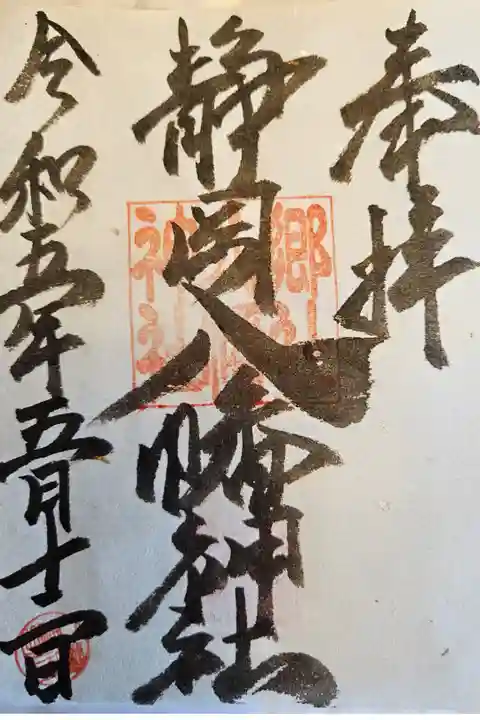 奉拝
静岡八幡神社
令和五年五月十二日
郷社
八幡
神社